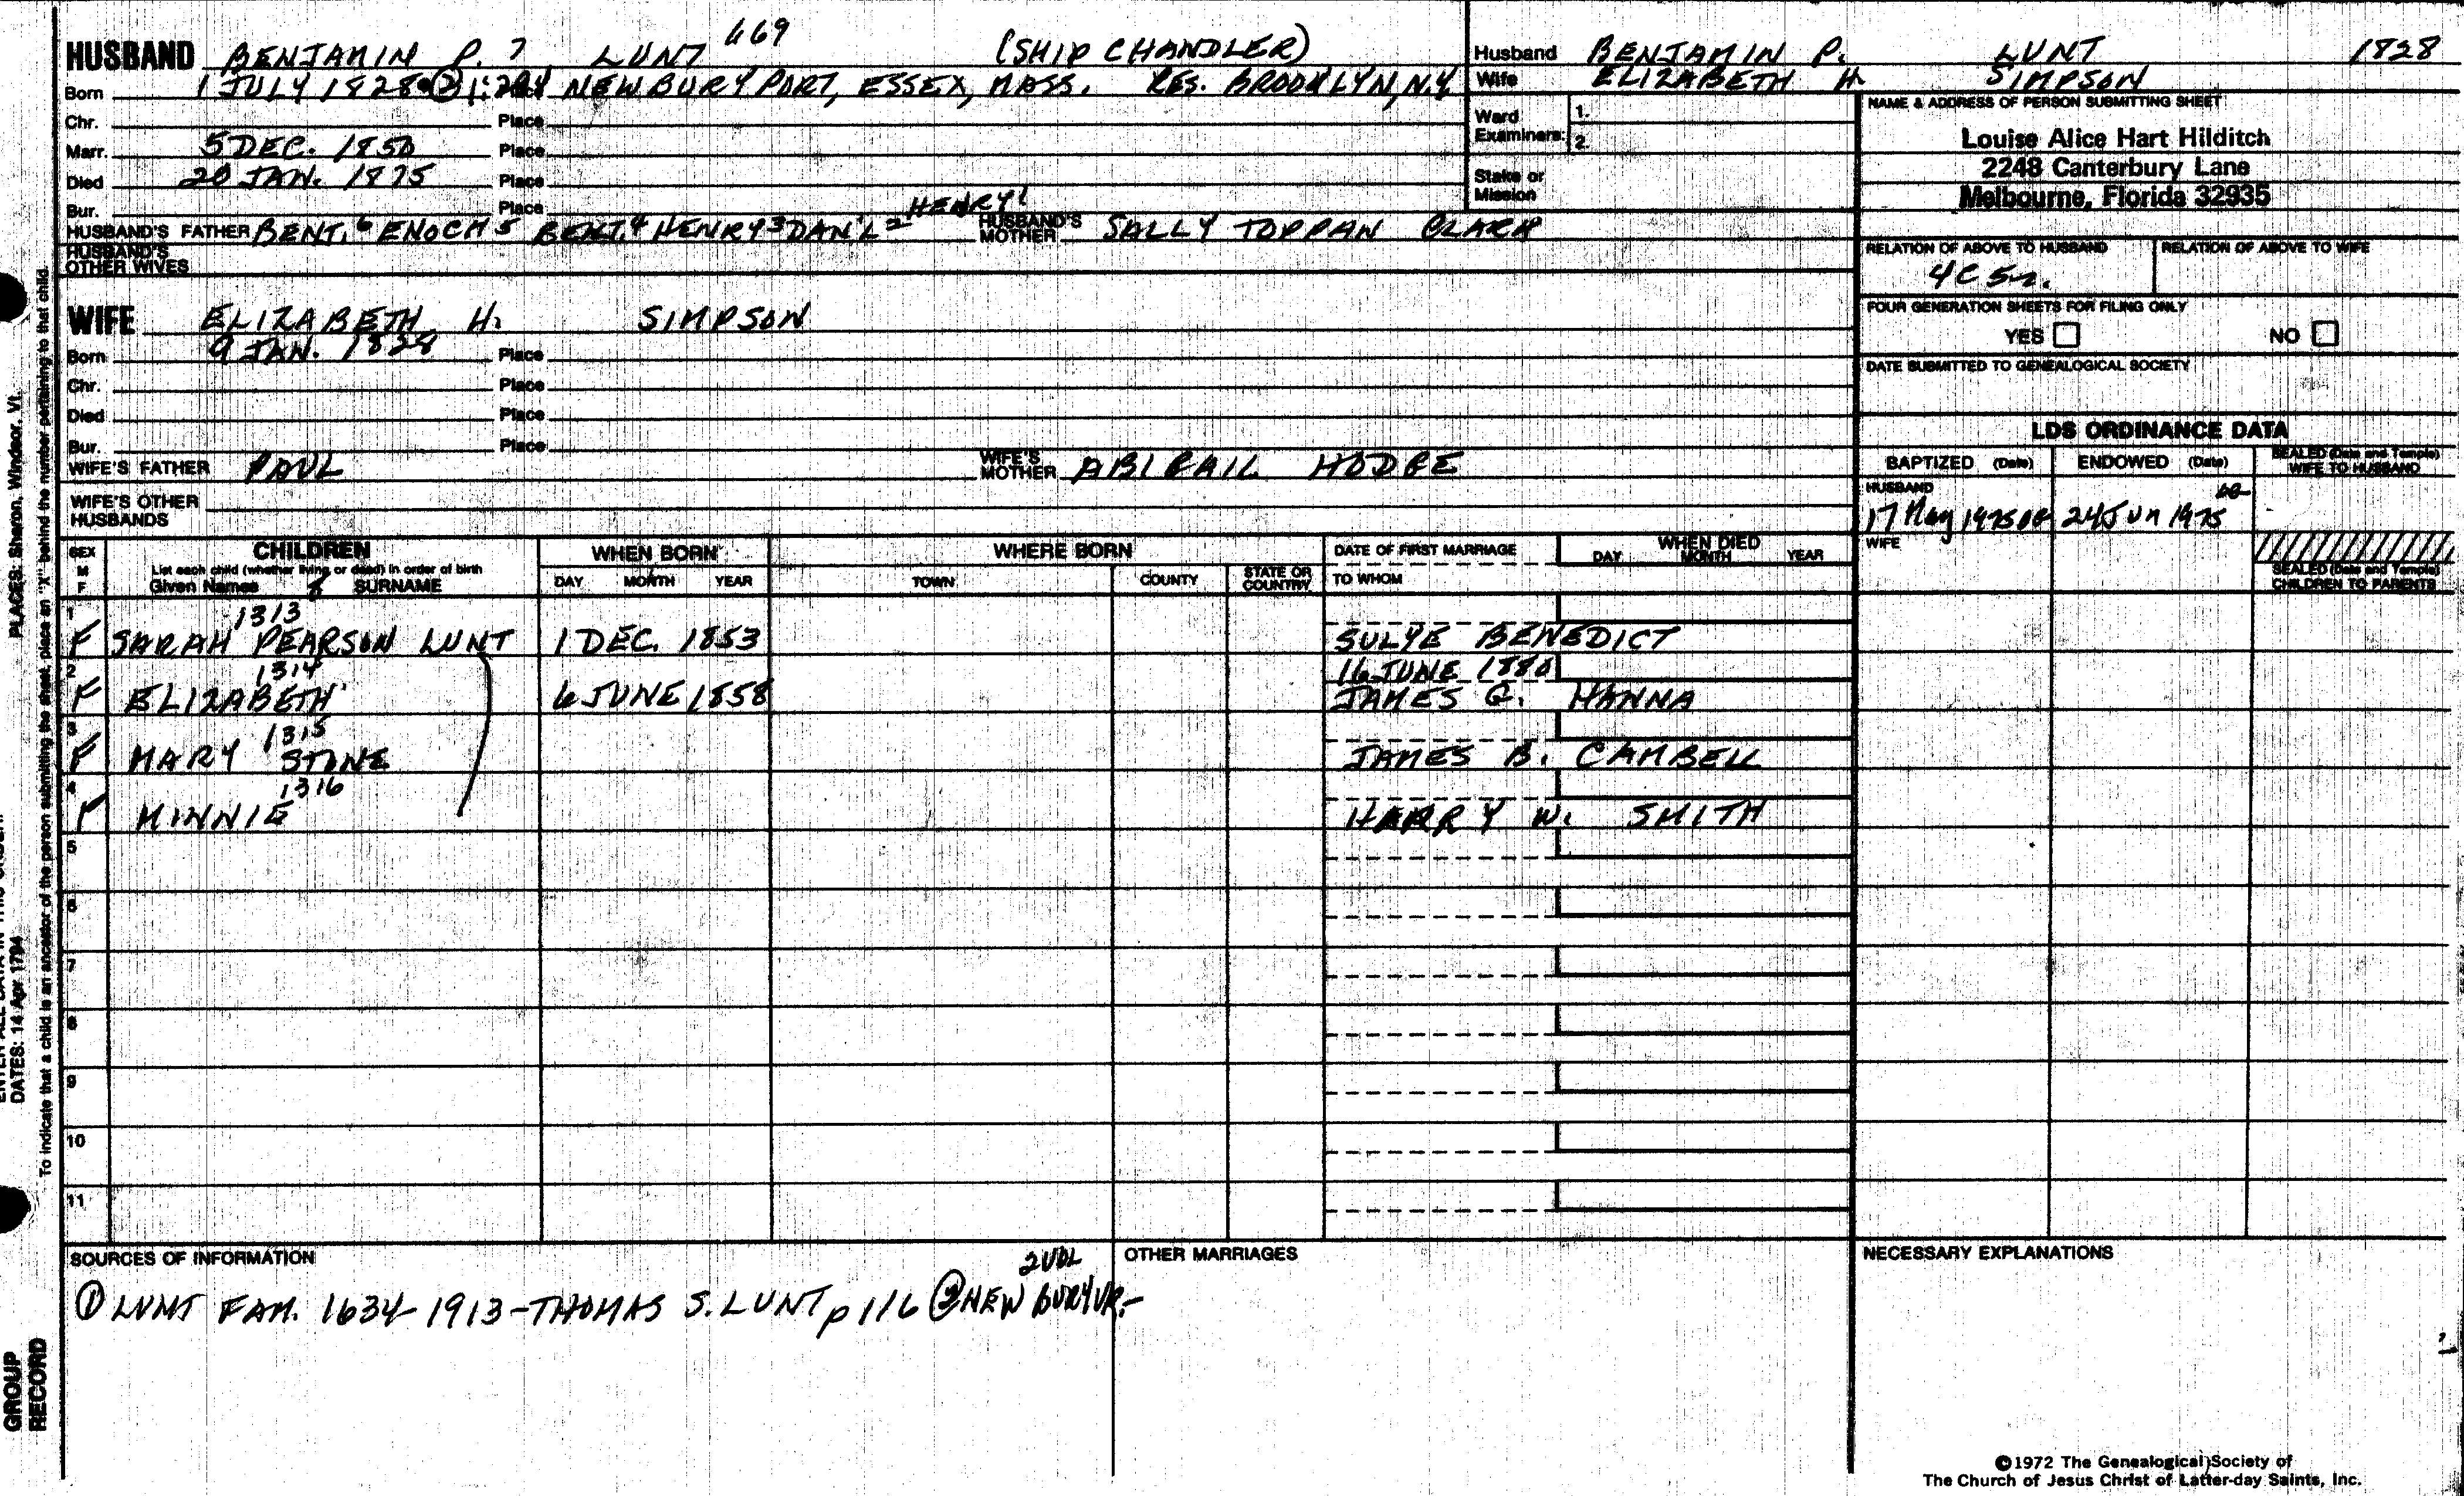 HUSBAND BENJAMIN P. 7 LUNT 669 (SHIP CHANDLER)
Born 1 JULY 1828 ② NEWBURYPORT, ESSEX, MASS. RES. BROOKLYN, N.Y.
Chr. Place
Marr. 5 DEC. 1850 Place
Died 20 JAN. 1875 Place
Bur. Place HENRY1
HUSBAND'S FATHER BENJ.6 ENOCH5 BENJ.4 HENRY3 DAN'L2 HUSBAND'S MOTHER SALLY TOPPAN CLARK
HUSBAND'S OTHER WIVES
WIFE ELIZABETH H. SIMPSON
Born 9 JAN. 1828 Place
Chr. Place
Died Place
Bur. Place
WIFE'S FATHER PAUL WIFE'S MOTHER ABIGAIL HODGE
WIFE'S OTHER HUSBANDS
Husband BENJAMIN P. LUNT 1828
Wife ELIZABETH H. SIMPSON
Ward Examiners: 1.
2.
Stake or Mission
NAME & ADDRESS OF PERSON SUBMITTING SHEET
Louise Alice Hart Hilditch
2248 Canterbury Lane
Melbourne, Florida 32935
RELATION OF ABOVE TO HUSBAND RELATION OF ABOVE TO WIFE
4C 5r.
FOUR GENERATION SHEETS FOR FILING ONLY
YES NO
DATE SUBMITTED TO GENEALOGICAL SOCIETY
LDS ORDINANCE DATA
BAPTIZED (Date) ENDOWED (Date) SEALED (Date and Temple) WIFE TO HUSBAND
HUSBAND
17 May 1975 24 Jun 1975
WIFE
SEALED (Date and Temple) CHILDREN TO PARENTS
SEX M F
CHILDREN
List each child (whether living or dead) in order of birth
Given Names 8 SURNAME
WHEN BORN
DAY MONTH YEAR
WHERE BORN
TOWN COUNTY STATE OR COUNTRY
DATE OF FIRST MARRIAGE
TO WHOM
WHEN DIED
DAY MONTH YEAR
1 1313
F SARAH PEARSON LUNT 1 DEC. 1853 SULYE BENEDICT
2 1314 16 JUNE 1880
F ELIZABETH 6 JUNE 1858 JAMES G. HANNA
3 1315
F MARY STONE JAMES B. CAMBELL
4 1316
F MINNIE HARRY W. SMITH
5
6
7
8
9
10
11
SOURCES OF INFORMATION
2 VOL
① LUNT FAM. 1634-1913-THOMAS S. LUNT p 116 ② NEWBURY VR.-
OTHER MARRIAGES
NECESSARY EXPLANATIONS
©1972 The Genealogical Society of
The Church of Jesus Christ of Latter-day Saints, Inc.
PLACES: Sharon, Windsor, Vt.
DATES: 14 Apr 1794
To indicate that a child is an ancestor of the person submitting the sheet, place an "X" behind the number pertaining to that child.
GROUP
RECORD